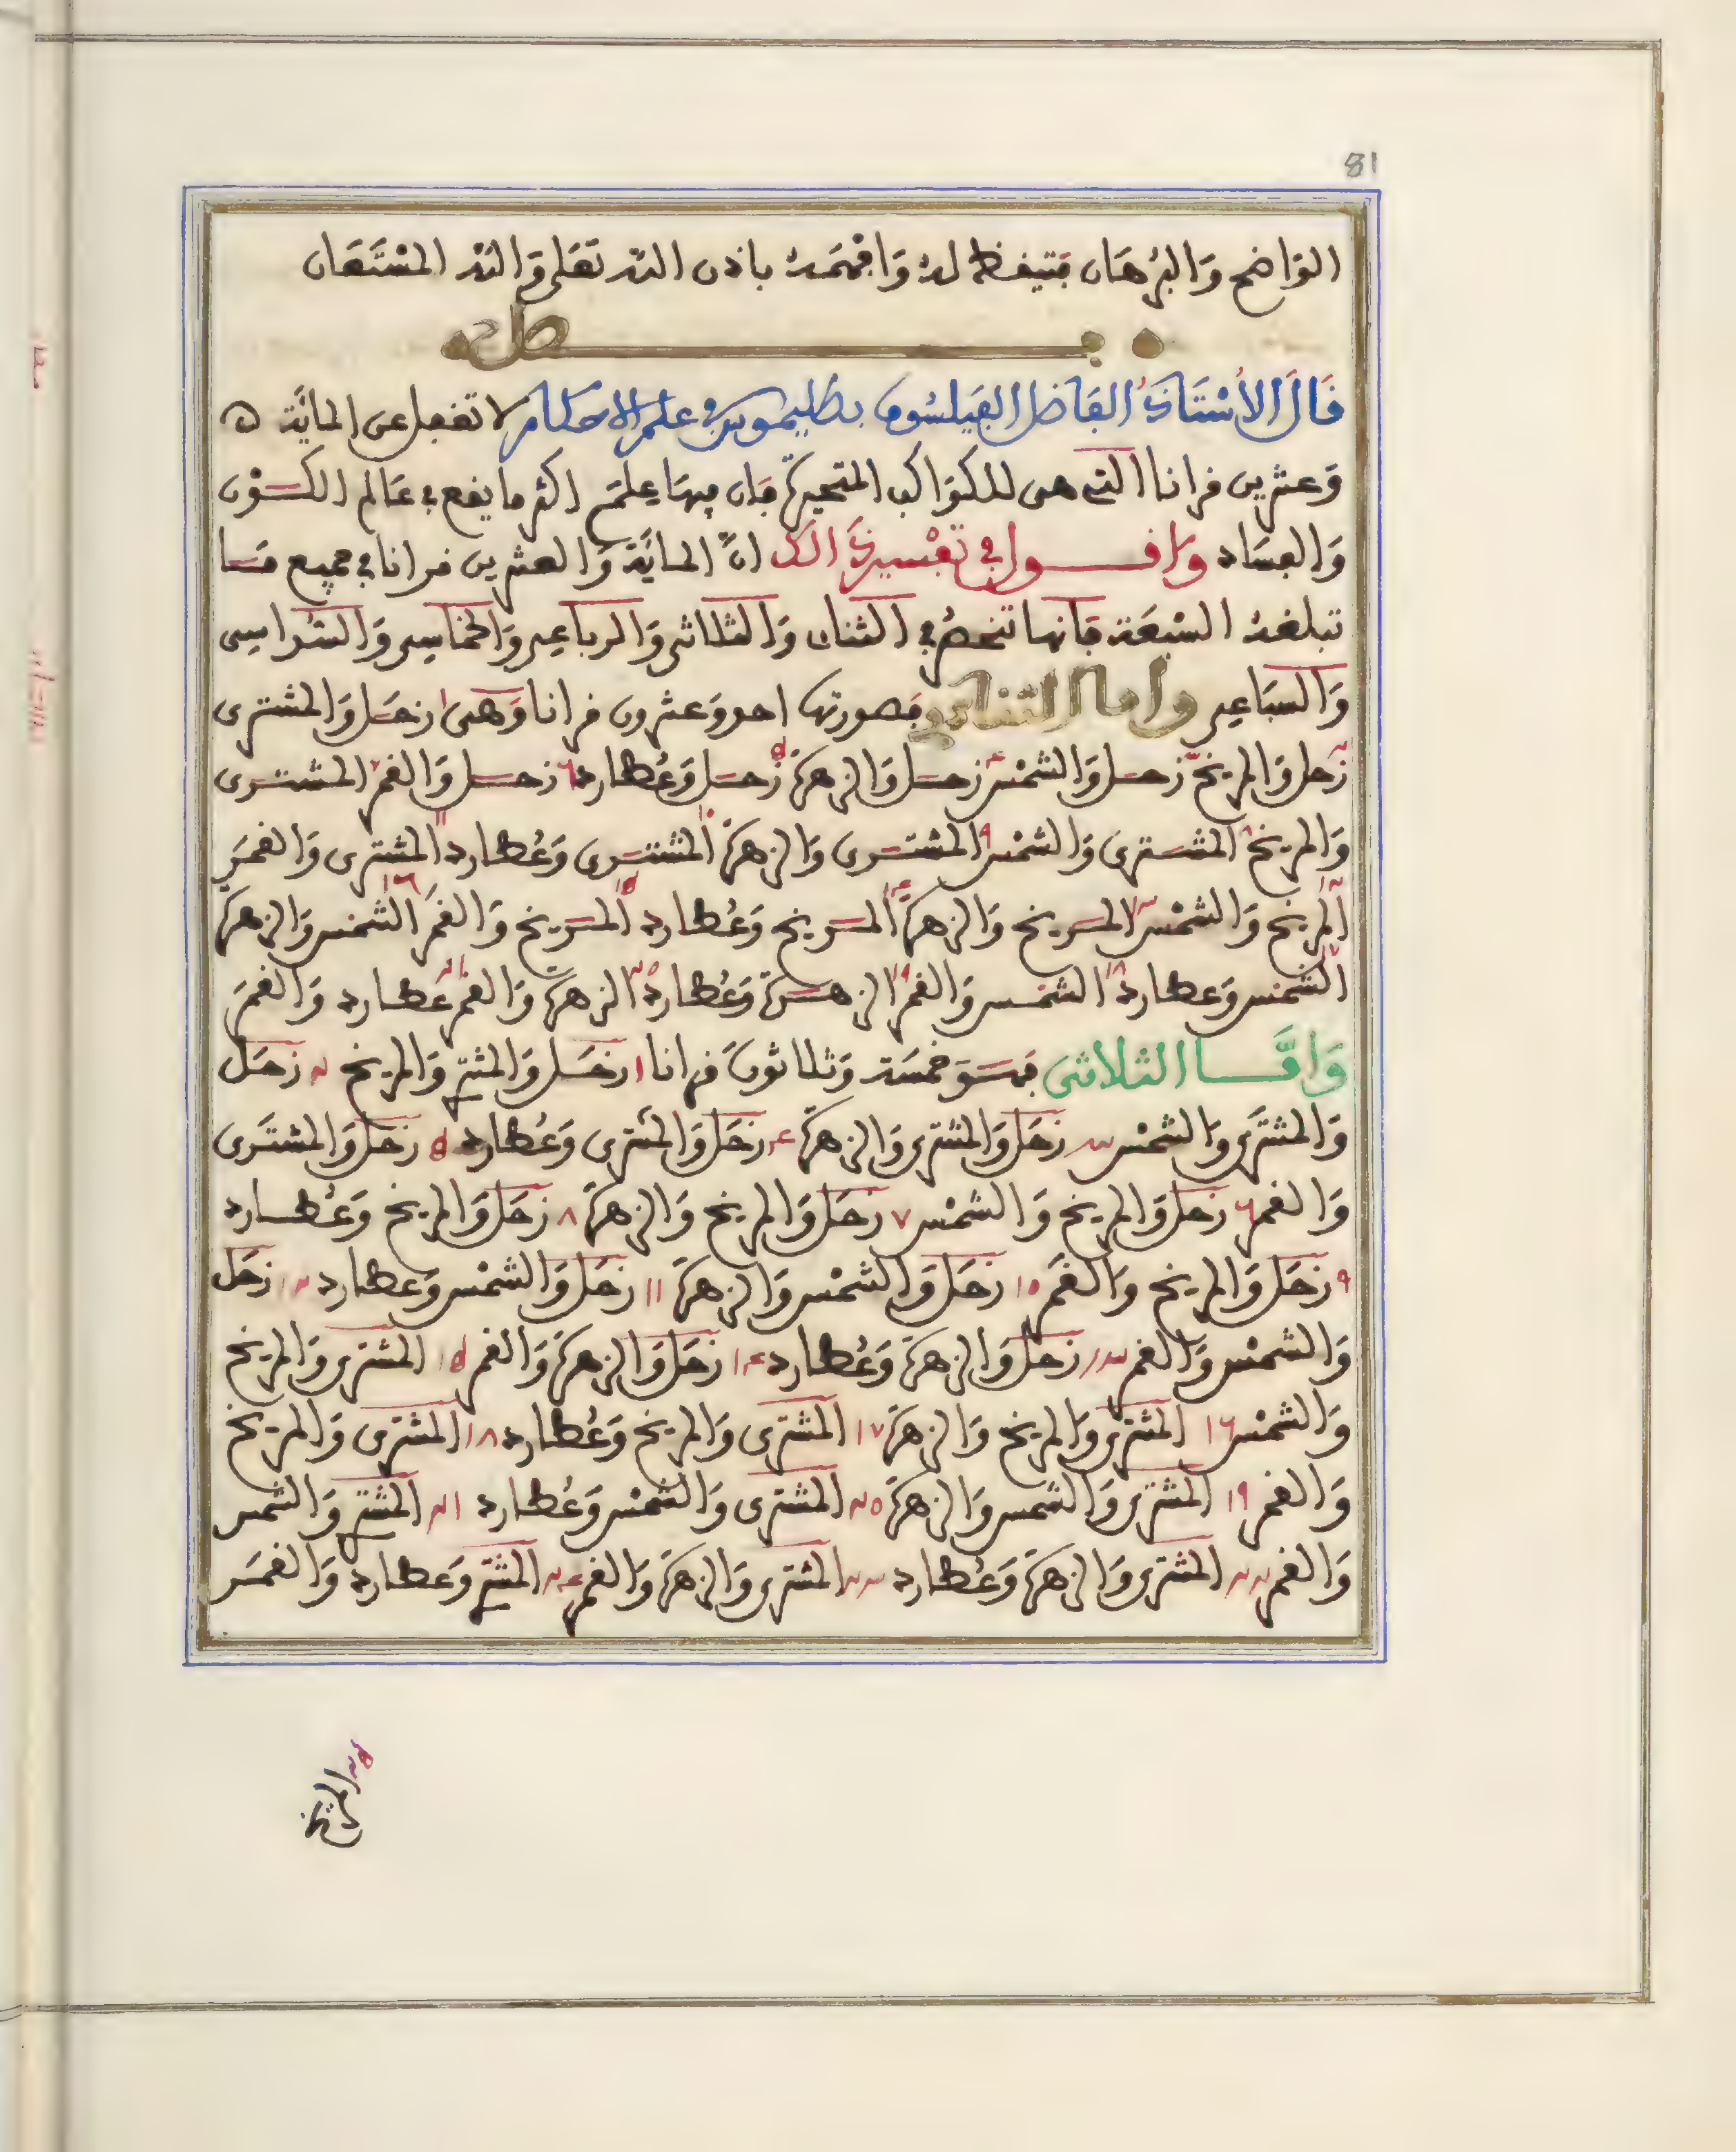 81
الوَاضح وَالبُرهَان فتيقظ له وَافهَمه باذن الله تعَلى وَالله المسْتَعَان
فصل
قَالَ الأسْتَاذُ الفَاضل الفَيلسُوف بطليموس في علم الاحكام لا تغفل عن المائَة
وَعشرين قرانا التي هي للكوَاكب المتحيرة فان فيهَا علمَ اكثر ما يقع في عَالم الكَوْن
وَالفسَاد وَاقول في تفْسير ذَالك انّ المائَة وَالعشرين قرانا في جميع مَا
تبلغه السبْعَة فانها تنحصُر في الثنائ وَالثلاثي وَالرباعي وَالخماسي وَالسُداسي
وَالسبَاعي وَاما الثنائي فصورتها احد وَعشرون قرانا وَهي ١ زحَل وَالمشتري
٢ زحل وَالمريخ ٣ زحل وَالشمْس ٤ زحل وَالزهرَة ٥ زحل وَعُطارد ٦ زحل وَالقمر ٧ المشتري
وَالمريخ ٨ المشتري وَالشمْس ٩ المشتري وَالزهرَة ١٠ المشتري وَعُطارد ١١ المشتري وَالقمَر
١٢ المريخ وَالشمْس ١٣ المريخ وَالزهرَة ١٤ المريخ وَعُطارد ١٥ المريخ وَالقمَر ١٦ الشمْس وَالزهرَة
١٧ الشمْس وَعطارد ١٨ الشمْس وَالقمر ١٩ الزهرَة وَعُطارد ٢٠ الزهرَة وَالقمر ٢١ عطارد وَالقمَر
وَامَّا الثلاثي فهوَ خمسَة وَثلاثونَ قرانا ١ زحَل وَالمشتري وَالمريخ ٢ زحَل
وَالمشتَري وَالشمْس ٣ زحَل وَالمشتري وَالزهرَة ٤ زحَل وَالمشتري وَعُطارد ٥ زحَل وَالمشتَري
وَالقمر ٦ زحَل وَالمريخ وَالشمْس ٧ زحَل وَالمريخ وَالزهرَة ٨ زحَل وَالمريخ وَعُطارد
٩ زحَل وَالمريخ وَالقمَر ١٠ زحَل وَالشمْس وَالزهرَة ١١ زحَل وَالشمْس وَعطارد ١٢ زحَل
وَالشمْس وَالقمر ١٣ زحَل وَالزهرَة وَعُطارد ١٤ زحَل وَالزهرَة وَالقمر ١٥ المشتري وَالمريخ
وَالشمْس ١٦ المشتري وَالمريخ وَالزهرَة ١٧ المشتري وَالمريخ وَعُطارد ١٨ المشتَري وَالمريخ
وَالقمر ١٩ المشتري وَالشمس وَالزهرَة ٢٠ المشتري وَالشمْس وَعُطارد ٢١ المشتري وَالشمس
وَالقمر ٢٢ المشتري وَالزهرَة وَعُطارد ٢٣ المشتري وَالزهرَة وَالقمر ٢٤ المشتري وَعطارد وَالقمَر
٢٥ المريخ